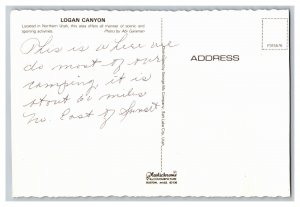 LOGAN CANYON
Located in Northern Utah, this area offers all manner of scenic and
sporting activities. Photo by
This is where we
do most of our
camping, it is
about 60 miles
No. East of Sunset
ADDRESS
Plastichrome